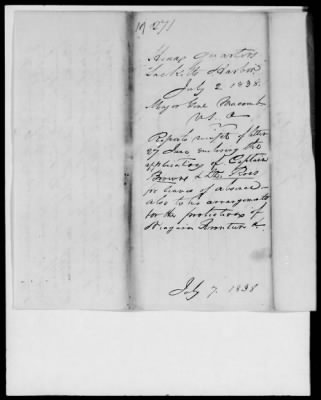 M 271
Head Quarters
Sacketts Harbor
July 2 1838.
Major Genl Macomb
U.S.A
Reports receipt of letter
27 June, enclosing the
application of Captain
Browne & Lt. Ross
for leaves of absence—
also to his arrangements
for the protection of
Niagara Frontier &c
July 7. 1838